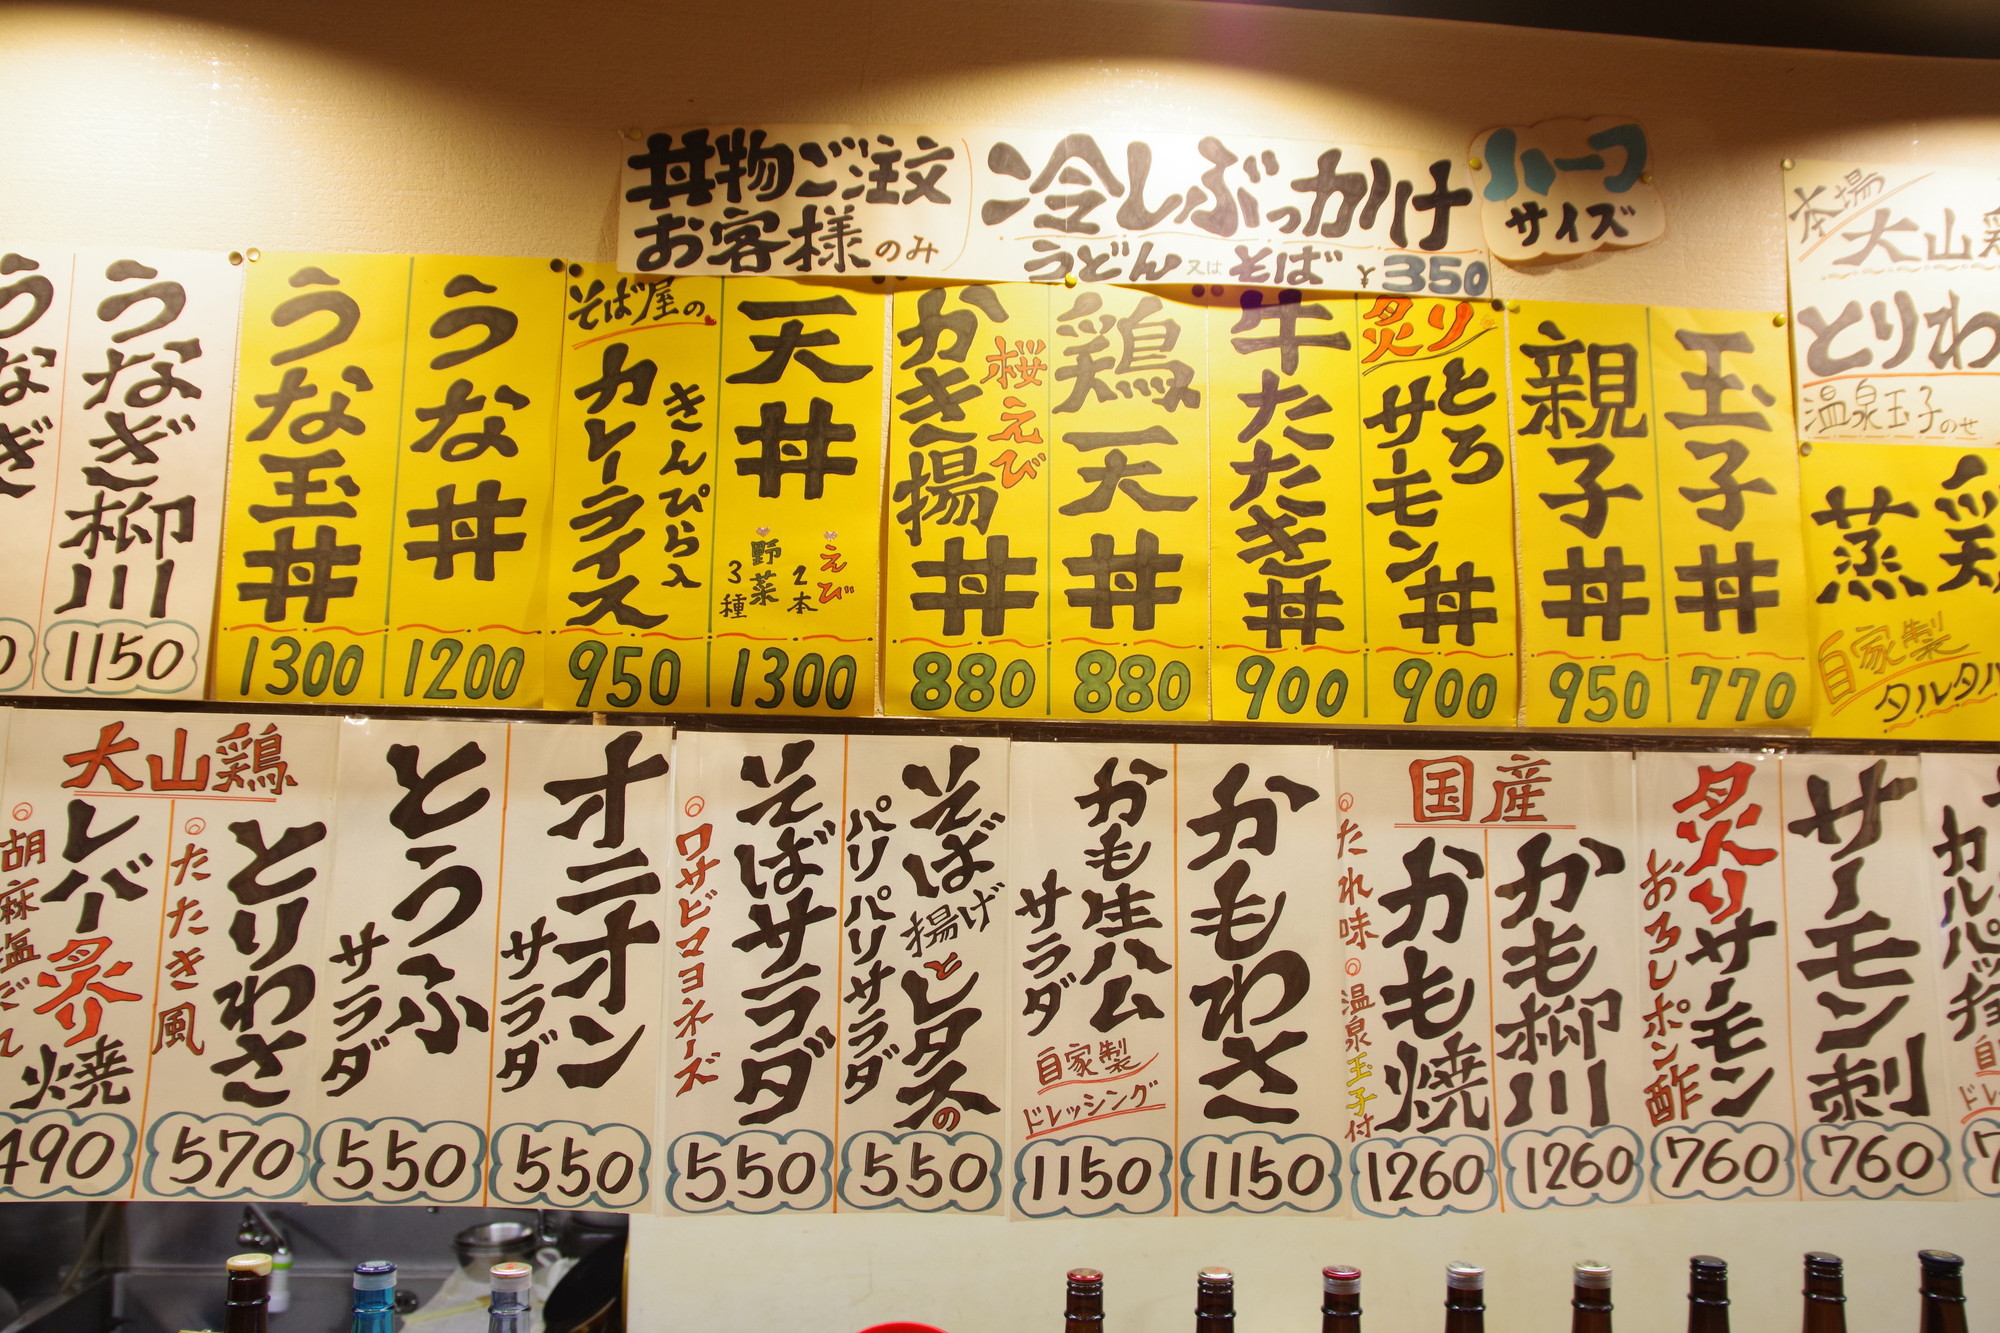 丼物ご注文
お客様のみ
冷しぶっかけ
うどん又はそば ¥350
ハーフ
サイズ
本場
大山鶏
とりわ
温泉玉子のせ
うなぎ
うなぎ柳川
1150
うな玉丼
1300
うな丼
1200
そば屋の
カレーライス
きんぴら入
950
天丼
えび2本
野菜3種
1300
桜えび
かき揚丼
880
鶏天丼
880
牛たたき丼
900
炙り
とろ
サーモン丼
900
親子丼
950
玉子丼
770
蒸鶏
自家製
タルタル
大山鶏
レバー炙り焼
胡麻塩だれ
490
とりわさ
たたき風
570
とうふ
サラダ
550
オニオン
サラダ
550
そばサラダ
ワサビマヨネーズ
550
そば揚げとレタスの
パリパリサラダ
550
かも生ハム
サラダ
自家製
ドレッシング
1150
かもわさ
1150
国産
かも焼
たれ味
温泉玉子付
1260
かも柳川
1260
炙りサーモン
おろしポン酢
760
サーモン刺
760
カルパッチョ